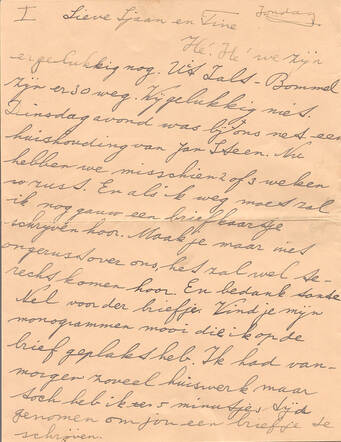 I Lieve Sjaan en Tine Zondag
He! He! we zijn
er gelukkig nog. Uit Zalt-Bommel
zijn er 30 weg. Wij gelukkig niet.
Dinsdagavond was bij ons net een
huishouding van Jan Steen. Nu
hebben we misschien 2 of 3 weken
rust. En als ik weg moet zal
ik nog gauw een briefkaartje
schrijven hoor. Maak je maar niet
ongerust over ons, het zal wel te-
recht komen hoor. En bedank tante
Nel voor der briefje. Vind je mijn
monogrammen mooi die ik op de
brief geplakt heb. Ik had van-
morgen zoveel huiswerk maar
toch heb ik 5 minuutjes tijd
genomen om jou een briefje te
schrijven.